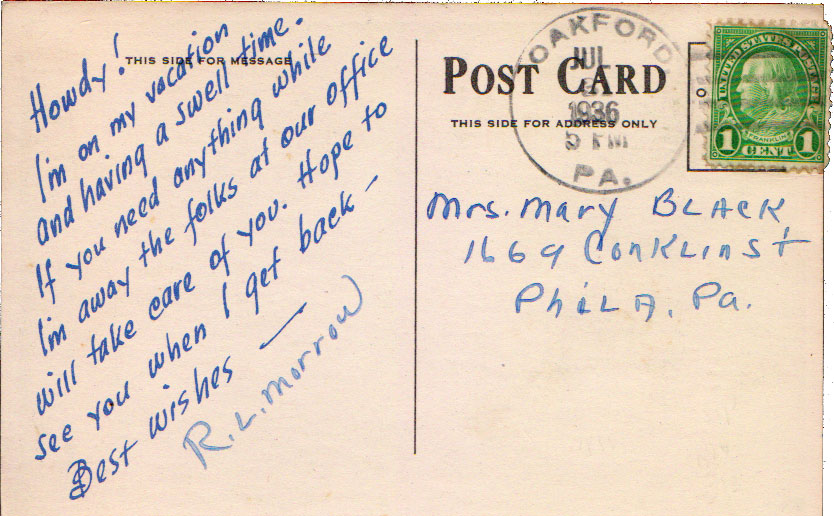 THIS SIDE FOR MESSAGE
Howdy!
I'm on my vacation
and having a swell time.
If you need anything while
I'm away the folks at our office
will take care of you. Hope to
see you when I get back —
Best wishes —
R. L. Morrow
OAKFORD
JUL
1936
5 PM
PA.
POST CARD
THIS SIDE FOR ADDRESS ONLY
UNITED STATES POSTAGE
FRANKLIN
1 CENT 1
Mrs. Mary BLACK
1669 Conklin St
PhilA, Pa.